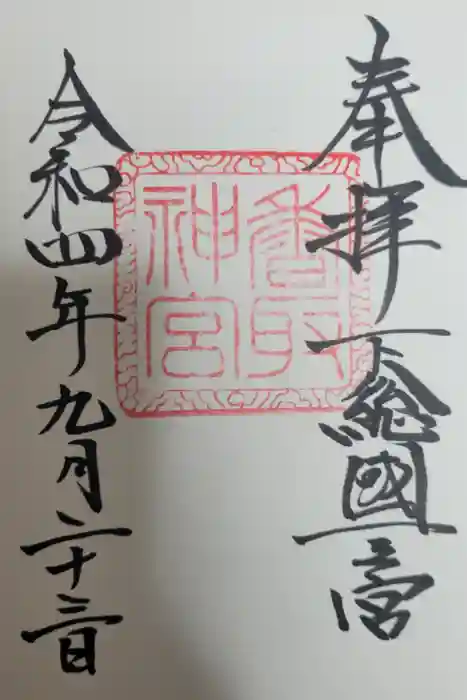 奉拝 下総國一宮
香取
神宮
令和四年九月二十三日